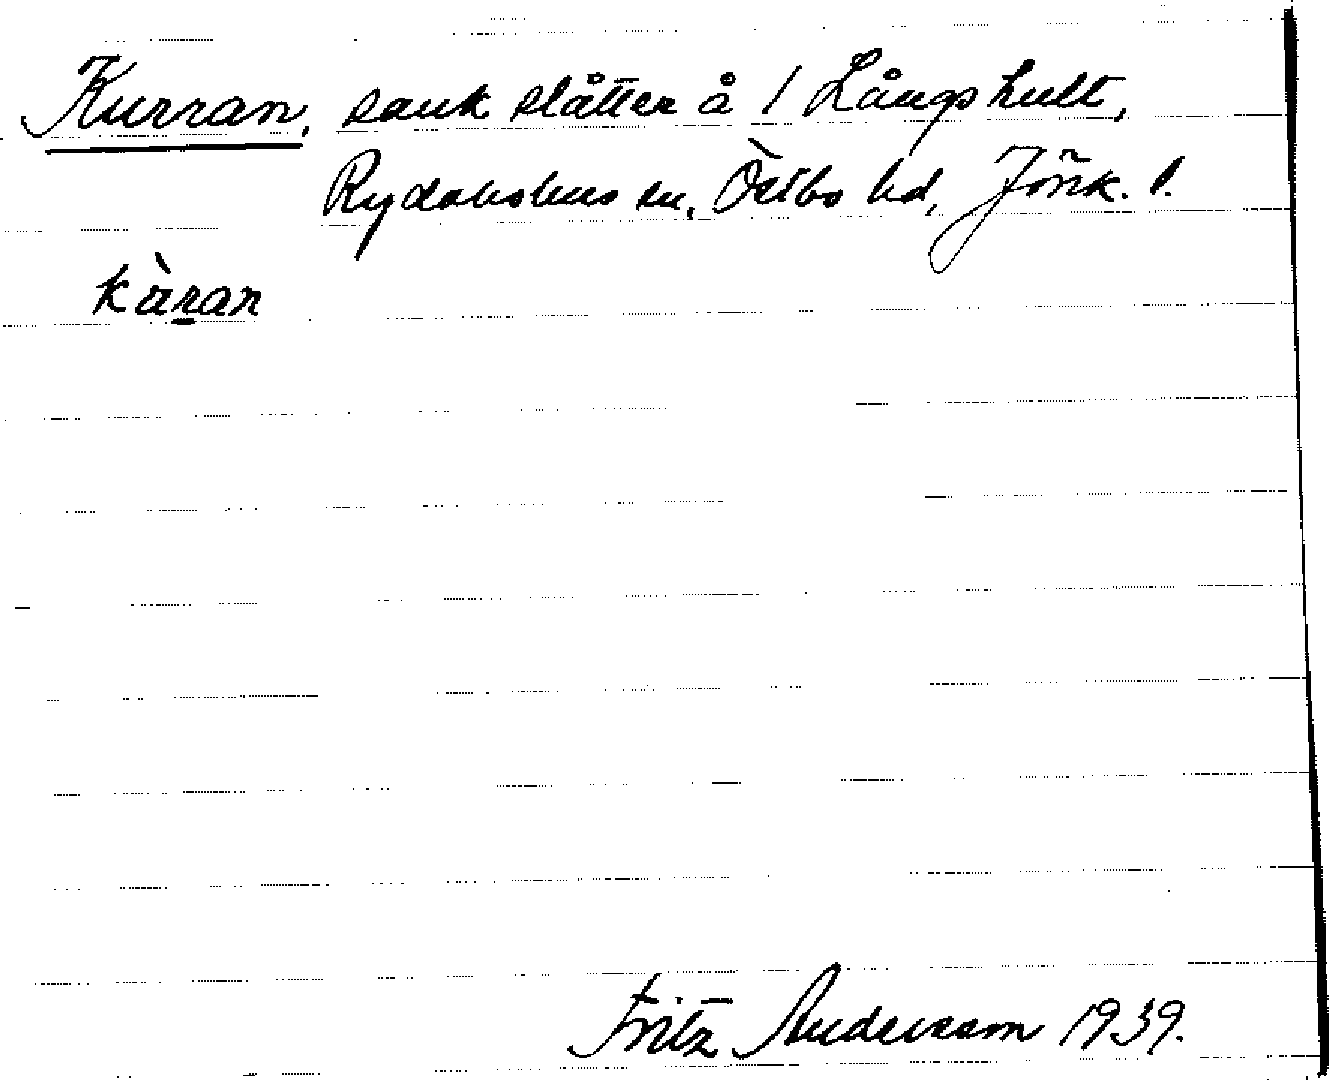 Kurran, sank slåtter å 1 Långshult,
Rydaholms sn, Östbo hd, Jönk. l.
kàran
Fritz Andersson 1939.